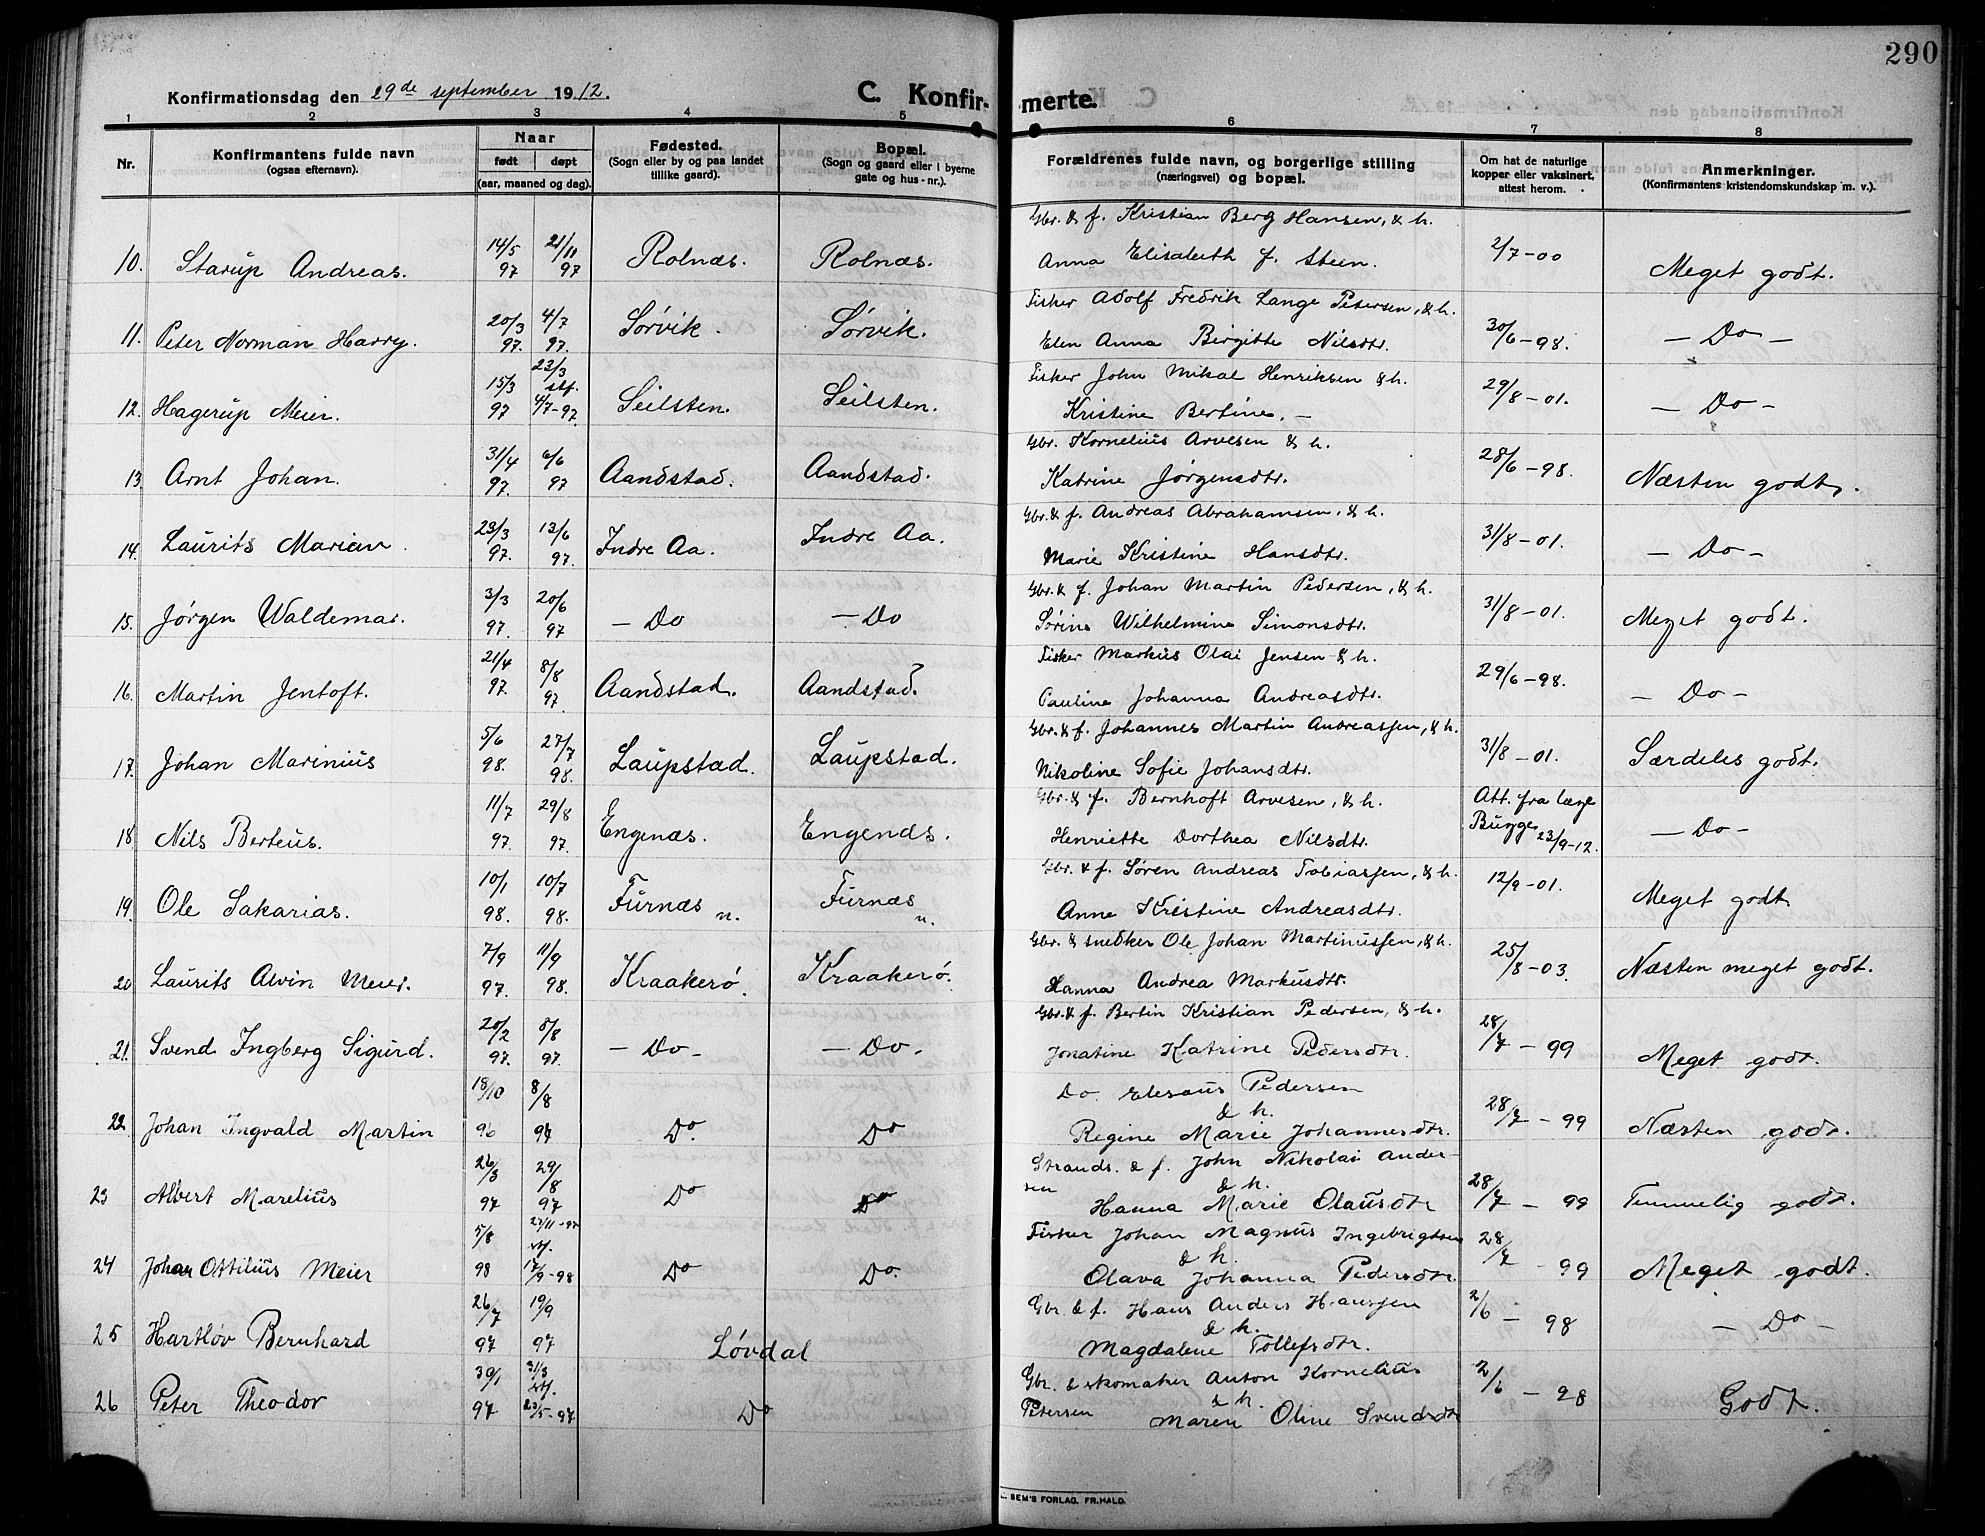 290
Konfirmationsdag den 29de september 1912.
C. Konfir- merte.
1 2 3 4 5 6 7 8
Nr.
Konfirmantens fulde navn
(ogsaa efternavn).
Naar
født døpt
(aar, maaned og dag).
Fødested.
(Sogn eller by og paa landet
tillike gaard).
Bopæl.
(Sogn og gaard eller i byerne
gate og hus-nr.).
Forældrenes fulde navn, og borgerlige stilling
(næringsvei) og bopæl.
Om hat de naturlige
kopper eller vaksinert,
attest herom.
Anmerkninger.
(Konfirmantens kristendomskundskap m. v.).
Gbr. & f. Kristian Berg Hansen, & h.
10. Starup Andreas. 14/5 97 21/11 97 Rolnæs. Rolnæs. Anna Elisabeth f. Steen. 2/7-00 Meget godt.
Fisker Adolf Fredrik Lange Petersen, & h.
11. Peter Norman Harry. 20/3 97. 4/7 97. Sørvik. Sørvik. Elen Anna Birgitte Nilsdtr. 30/6-98. – Do –
Fisker John Mikal Henriksen & h.
12. Hagerup Meier. 15/3 97 23/3 stf. 4/7-97. Seilsten. Seilsten. Kristine Bertine. – 29/8-01. – Do –
Gbr. Kornelius Arvesen & h.
13. Arnt Johan. 31/4 97. 6/6 97 Aandstad. Aandstad. Katrine Jørgensdtr. 28/6-98. Næsten godt.
Gbr. & f. Andreas Abrahamsen, & h.
14. Laurits Marian. 23/3 97. 13/6 97. Indre Aa. Indre Aa. Marie Kristine Hansdtr. 31/8-01. – Do –
Gbr. & f. Johan Martin Pedersen, & h.
15. Jørgen Waldemar. 3/3 97. 20/6 97 – Do – Do Sørine Wilhelmine Simonsdtr. 31/8-01. Meget godt.
Fisker Markus Olai Jensen & h.
16. Martin Jentoft. 21/4 97. 8/8 97. Aandstad. Aandstad. Pauline Johanna Andreasdtr. 29/6-98. – Do –
Gbr. & f. Johannes Martin Andreassen, & h.
17. Johan Marinius 5/6 98. 27/7 98. Laupstad. Laupstad. Nikoline Sofie Johansdtr. 31/8-01. Særdeles godt.
Gbr. & f. Bernhoft Arvesen, & h. Att. fra læge
18 Nils Berteus. 11/7 97. 29/8 97. Engenæs. Engenæs. Henriette Dorthea Nilsdtr. Bugge 23/9-12. – Do –
Gbr. & f. Søren Andreas Tobiassen, & h.
19. Ole Sakarias. 10/1 98. 10/7 98. Furnæs n. Furnæs n. Anne Kristine Andreasdtr. 12/9-01. Meget godt.
Gbr. & snedker Ole Johan Martinussen, & h.
20 Laurits Alvin Meier. 7/9 97. 11/9 98. Kraakerø. Kraakerø. Hanna Andrea Markusdtr. 25/8-03. Næsten meget godt.
Gbr. & f. Bertin Kristian Pedersen, & h.
21. Svend Ingberg Sigurd. 20/2 97. 8/8 97. – Do – – Do – Jonatine Katrine Pedersdtr. 28/7-99 Meget godt.
Do. Elesæus Pedersen & h.
22. Johan Ingvald Martin 18/10 96 8/8 97 Do. Do Regine Marie Johannesdtr. 28/7-99 Næsten godt.
Strands. & f. John Nikolai Andersen & h.
23 Albert Marelius 26/3 97 29/8 97 Do Do Hanna Marie Olausdtr 28/7-99 Temmelig godt.
Fisker Johan Magnus Ingebrigtsen & h.
24 Johan Ottilius Meier 5/8 98 27/11-97 stf. 17/9-98 Do Do. Olava Johanna Pedersdtr. 28/7-99 Meget godt.
Gbr. & f. Hans Anders Hanssen & h.
25 Hartløv Bernhard 26/7 97 19/9 97 Løvdal Magdalene Tollefsdtr. 2/6-98 – Do –
Gbr. & skomaker Anton Kornelius
26 Peter Theodor 30/1 97 31/3 stf. 23/5-97 Do Petersen & h. Maren Oline Svendsdtr 2/6-98 Godt.
SEM'S FORLAG. FR.HALD.